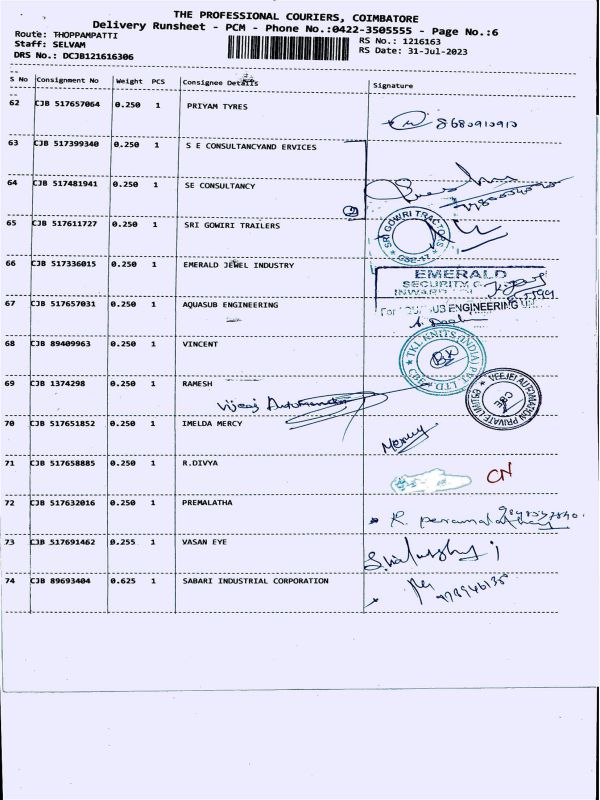 THE PROFESSIONAL COURIERS, COIMBATORE
Delivery Runsheet - PCM - Phone No.:0422-3505555 - Page No.:6
Route: THOPPAMPATTI
Staff: SELVAM
DRS No.: DCJB121616306
RS No.: 1216163
RS Date: 31-Jul-2023
S No Consignment No Weight PCS Consignee Details Signature
62 CJB 517657064 0.250 1 PRIYAM TYRES 8680910910
63 CJB 517399340 0.250 1 S E CONSULTANCYAND ERVICES
64 CJB 517481941 0.250 1 SE CONSULTANCY
65 CJB 517611727 0.250 1 SRI GOWIRI TRAILERS
SRI GOWRI TRACTORS
66 CJB 517336015 0.250 1 EMERALD JEWEL INDUSTRY
EMERALD
SECURITY
INWARD
67 CJB 517657031 0.250 1 AQUASUB ENGINEERING
For SUB ENGINEERING
68 CJB 89409963 0.250 1 VINCENT
TKL KNITS (INDIA) PVT. LTD
69 CJB 1374298 0.250 1 RAMESH
Vijeej Automation
VEEJEI AUTOMATION PRIVATE LIMITED
70 CJB 517651852 0.250 1 IMELDA MERCY Mercy
71 CJB 517658885 0.250 1 R.DIVYA CN
72 CJB 517632016 0.250 1 PREMALATHA
73 CJB 517691462 0.255 1 VASAN EYE
74 CJB 89693404 0.625 1 SABARI INDUSTRIAL CORPORATION